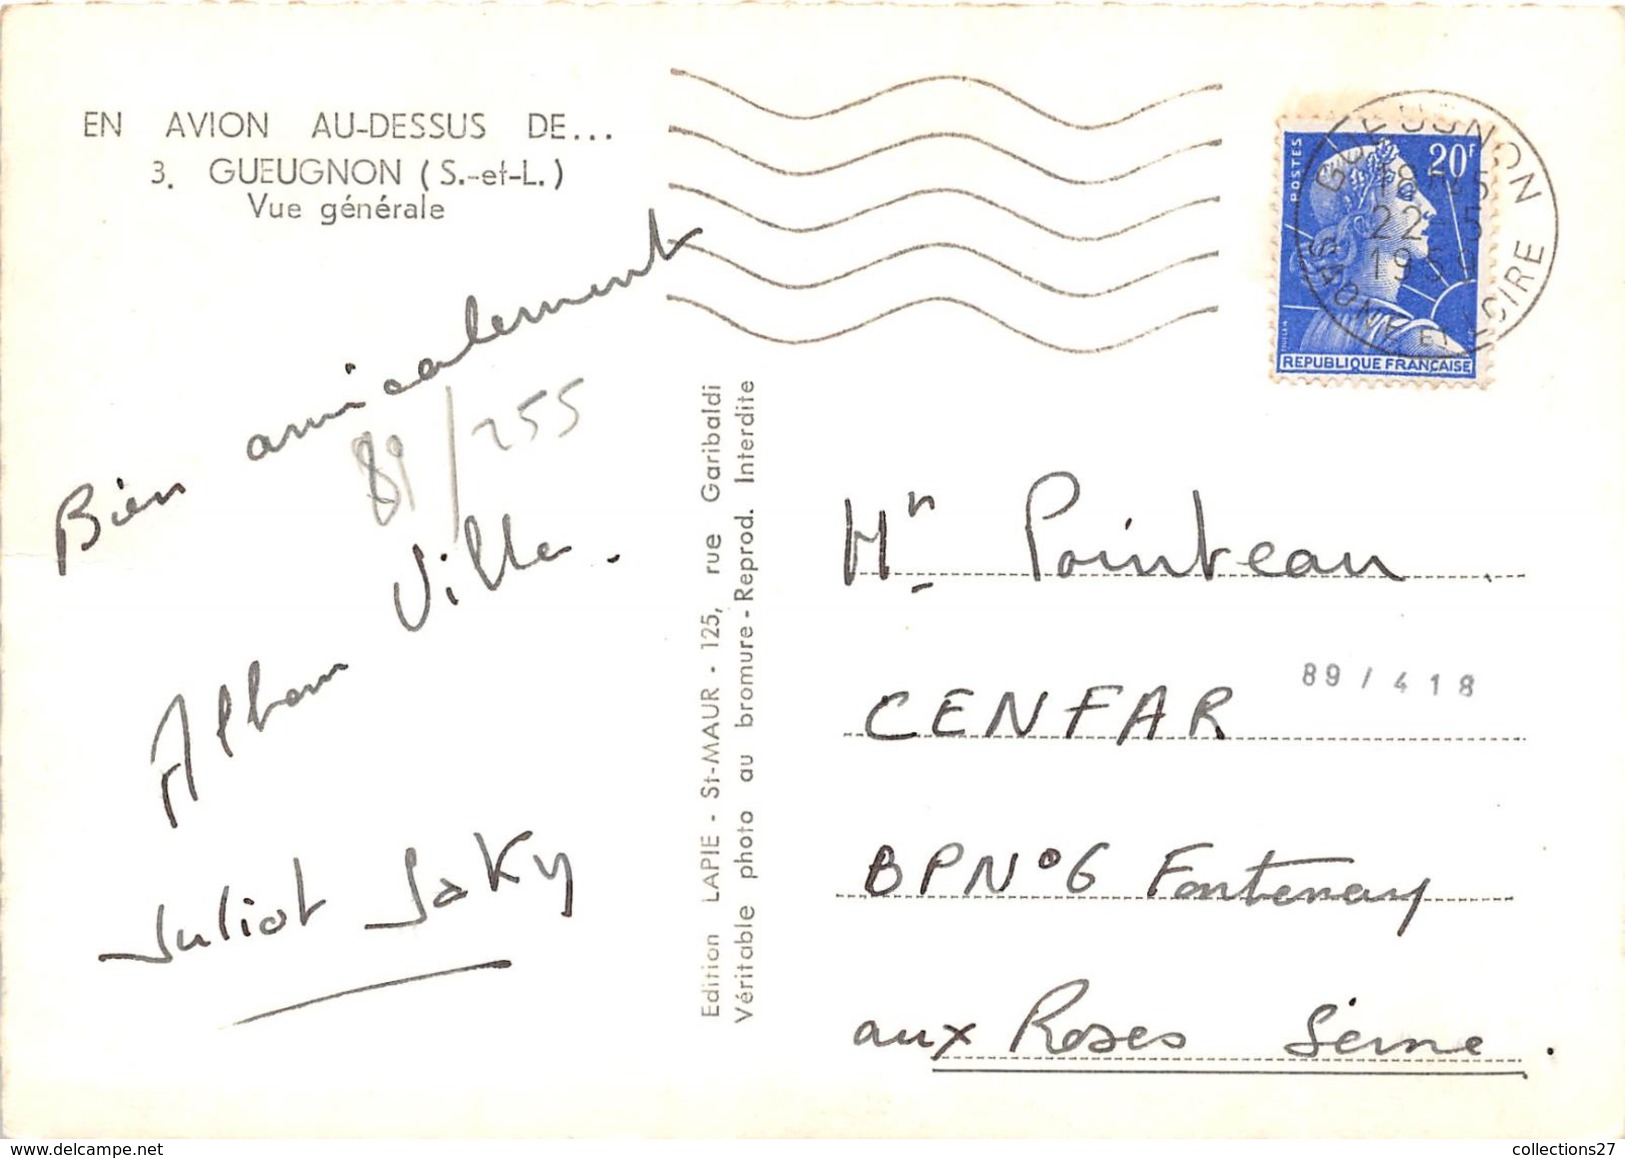 EN AVION AU-DESSUS DE...
3. GUEUGNON (S.-et-L.)
Vue générale
Bien amicalement
81/255
Ville.
Juliot Jaky
Edition LAPIE - St-MAUR - 125, rue Garibaldi
Véritable photo au bromure - Reprod. Interdite
POSTES
20F
REPUBLIQUE FRANÇAISE
GUEUGNON
22-5
SAONE ET LOIRE
Mr Pointeau
89/418
CENFAR
BP N°6 Fontenay
aux Roses Seine.
collections27